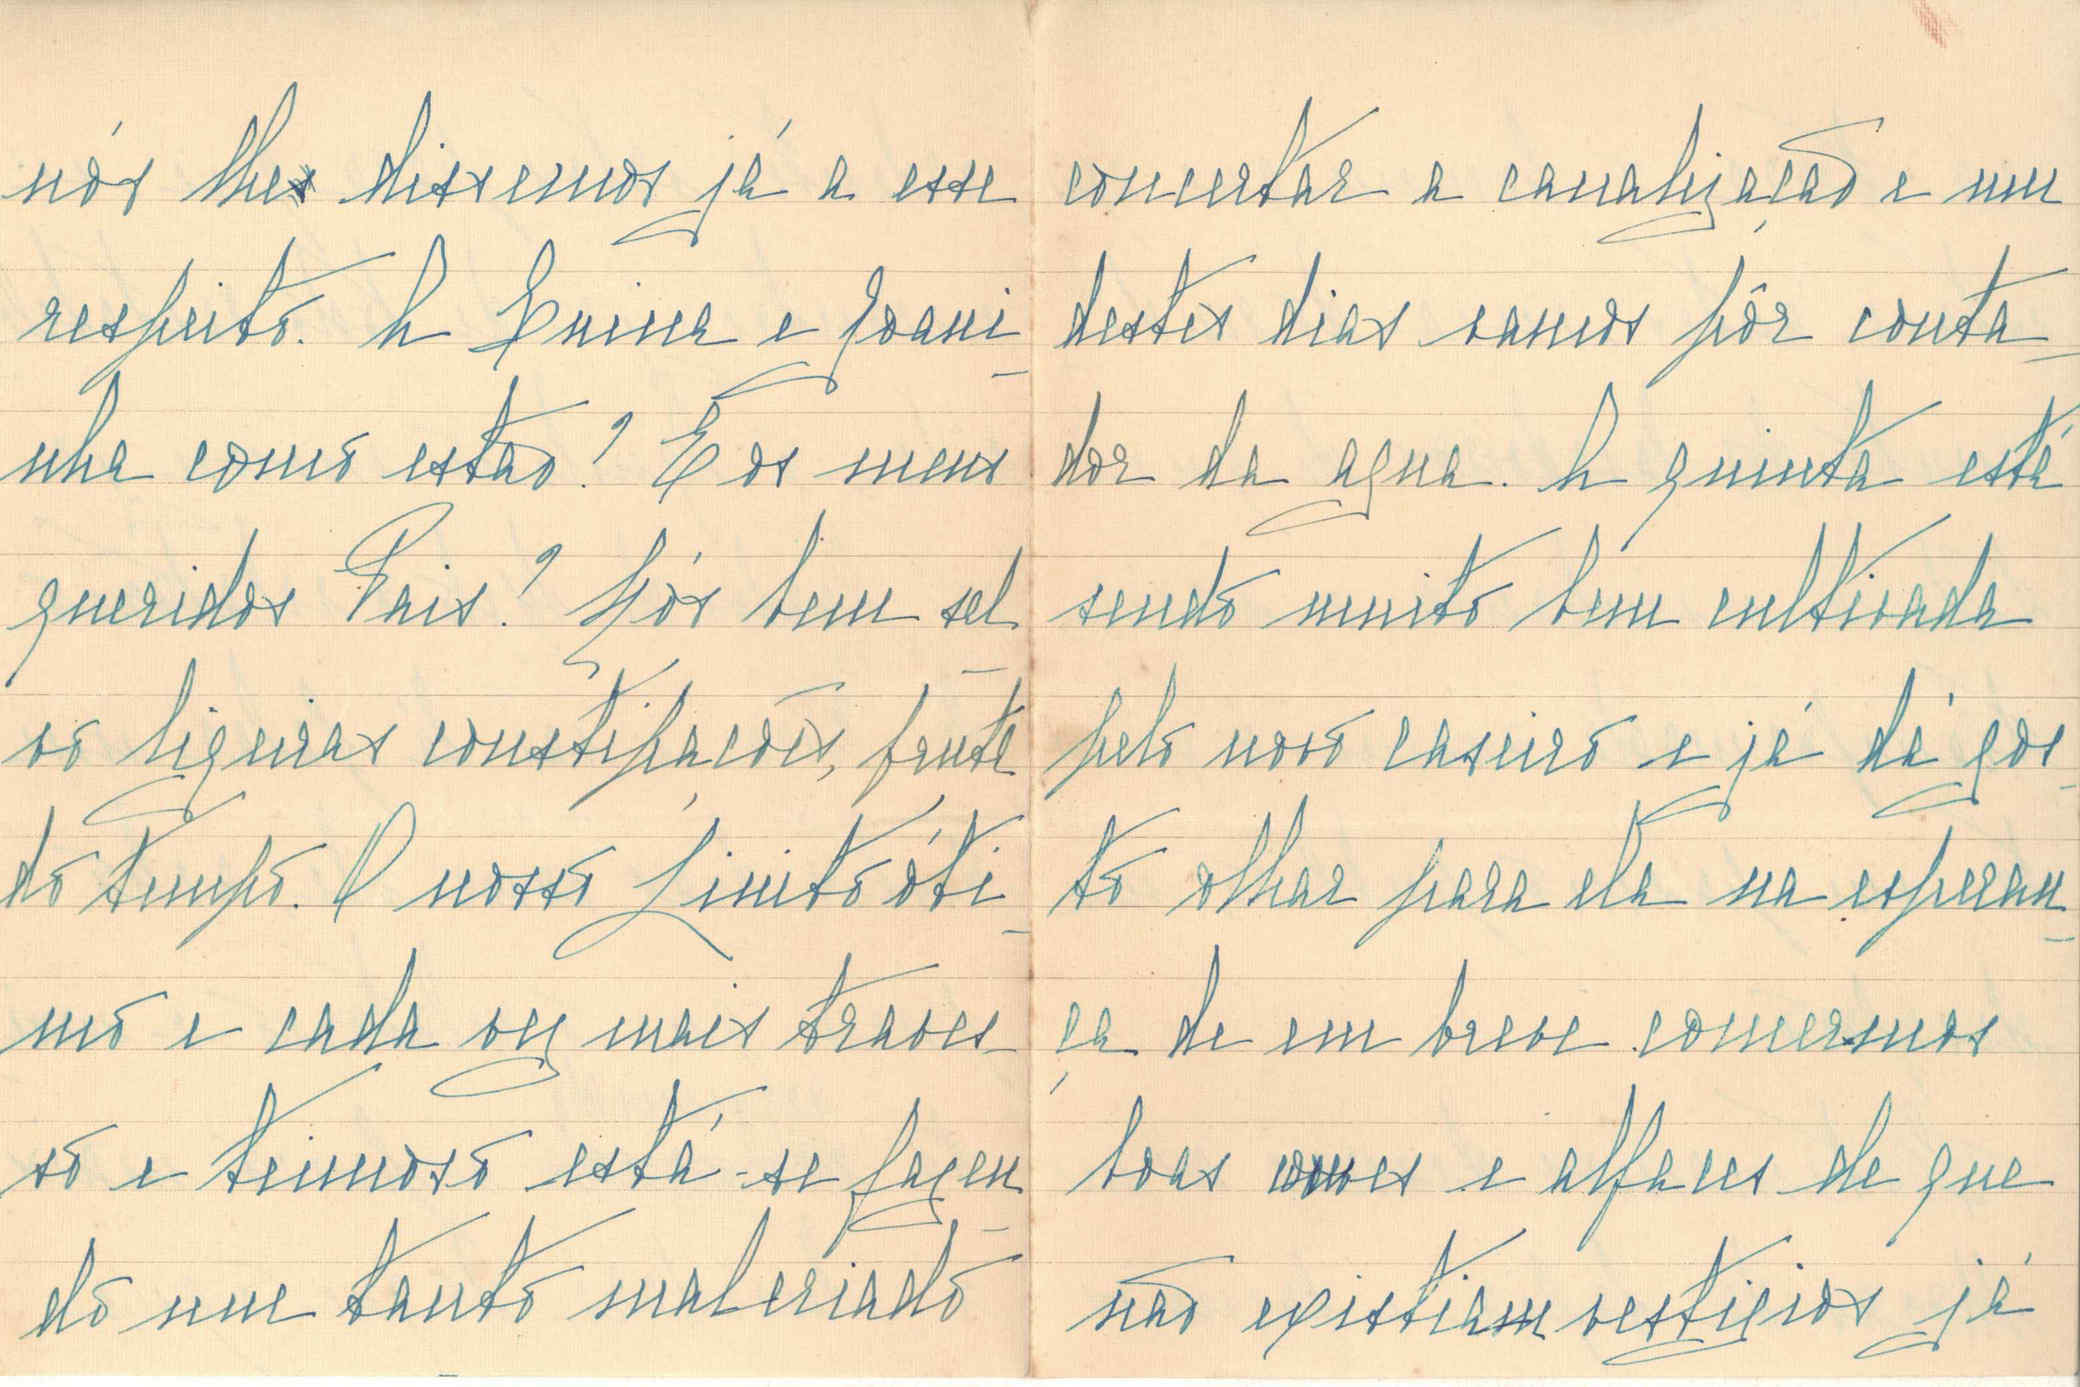 nós lhes dissemos já a esse
respeito. A Quina e Joani-
nha como estão? E os meus
queridos Pais? Nós bem sal-
vo ligeiras constipações, fruto
do tempo. O nosso Jinito óti-
mo e cada vez mais traves-
so e teimoso está-se fazen-
do um tanto malcriado
concertar a canalização e um
destes dias vamos pôr conta-
dor da agua. A quinta está
sendo muito bem cultivada
pelo novo caseiro e já dá gos-
to olhar para ela na esperan-
ça de em breve comermos
boas couves e alfaces de que
não existiam vestigios já